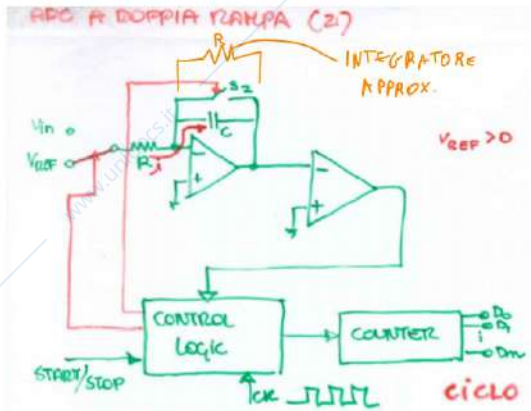 ADC A DOPPIA RAMPA (2)
R
INTEGRATORE
APPROX.
S2
Vin
C
VREF
R
i
VREF > 0
-
+
-
+
CONTROL
LOGIC
COUNTER
D0
D1
Dm
START/STOP
CK
CICLO